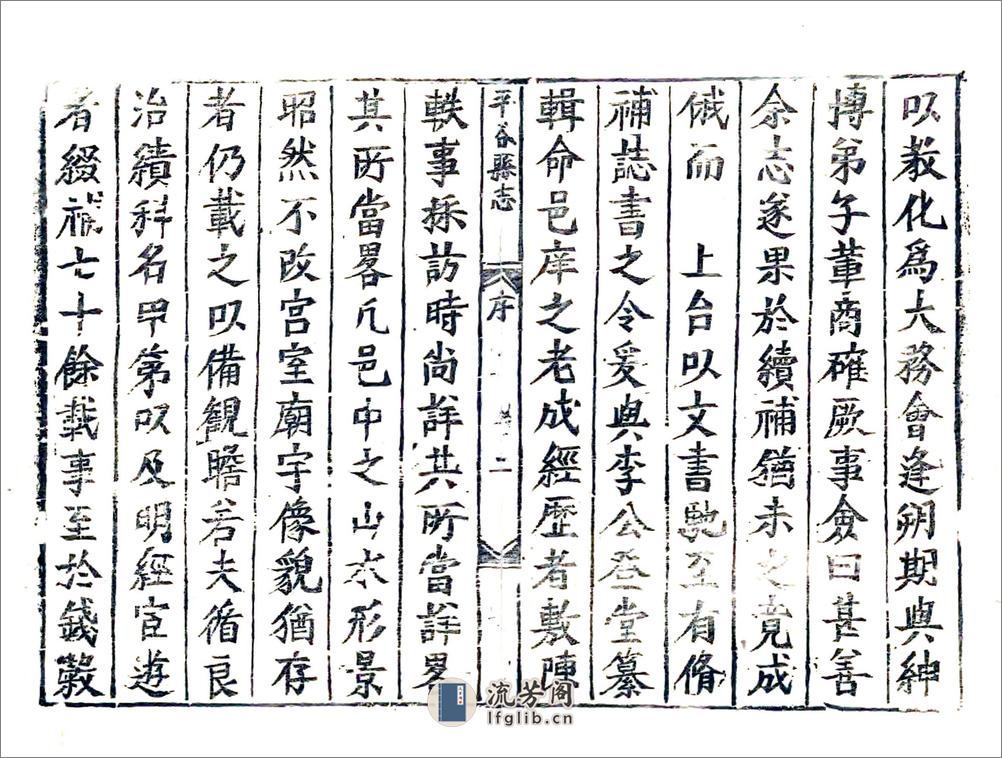 以教化爲大務會逢朔期與紳
博弟子軰商確厥事僉曰甚善
余志遂果於續補猶未之竟成
俄而　上台以文書馳至有脩
補誌書之令爰與李公登堂纂
輯命邑庠之老成經歷者敷陳
平谷縣志　序　二
軼事採訪時尚詳其所當詳畧
其所當畧凡邑中之山水形景
昭然不改宮室廟宇像貌猶存
者仍載之以備觀瞻若夫循良
治績科名甲第以及明經宦遊
者綴補七十餘載事至於錢穀
流芳阁
lfglib.cn